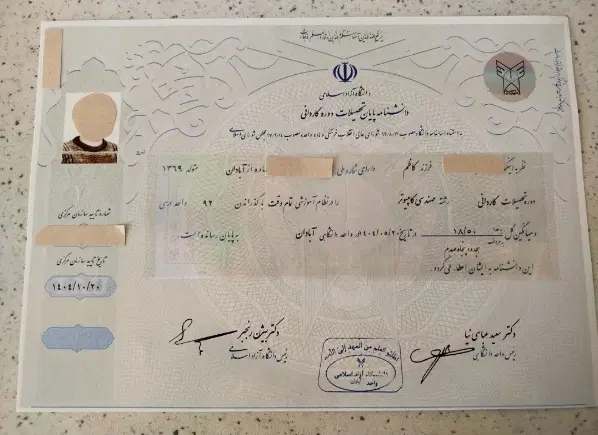 دانشگاه آزاد اسلامی
دانشنامه پایان تحصیلات دوره کاردانی
نظر به اینکه فرزند کاظم دارای شماره ملی صادره از آبادان متولد ۱۳۶۹
دوره تحصیلات کاردانی رشته مهندسی کامپیوتر را در نظام آموزشی تمام وقت با گذراندن ۹۲ واحد درسی
و میانگین کل ۱۸/۵۰ در تاریخ ۱۴۰۴/۰۵/۲۰ در واحد دانشگاهی آبادان به پایان رسانده است.
هجده و پنجاه صدم
این دانشنامه به ایشان اعطاء می گردد.
شماره تایید سازمان مرکزی
تاریخ تایید سازمان مرکزی
۱۴۰۴/۱۰/۲۰
دکتر سعید عباسی نیا
رئیس واحد دانشگاهی
دکتر بیژن رنجبر
رئیس دانشگاه آزاد اسلامی
اطلبوا العلم من المهد الی اللحد
دانشگاه آزاد اسلامی
واحد آبادان